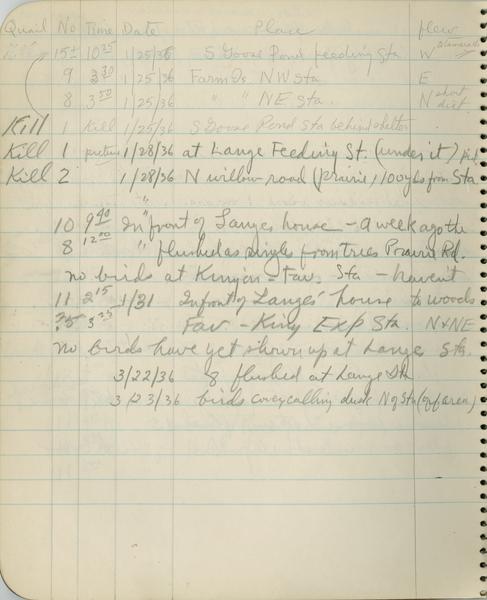 Quail No Time Date Place flew
15± 10 25 1/25/36 S Goose Pond feeding Sta W
9 3 30 1/25/36 Farm Is NW Sta E
8 3 50 1/25/36 " " NE Sta. N short dist
Kill 1 Kill 1/25/36 S Goose Pond Sta behind shelter
Kill 1 picture 1/28/36 at Lange Feeding St. (under it)
Kill 2 1/28/36 N willow road (prairie, 100 yds from Sta
10 9 40 " In front of Langes house - a week ago th
8 12 00 " flushed as singles from trees Prairie Rd.
no birds at - Fav. Sta - haven't
11 2 15 1/31 In front of Langes' house to woods
3 35 Fav - King Exp Sta. N & NE
no birds have yet shown up at Lange Sta.
3/22/36 8 flushed at Lange Sta
3/23/36 birds covey calling dusk N of Sta